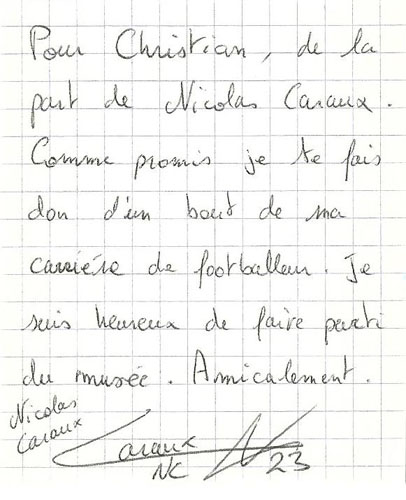 Pour Christian, de la
part de Nicolas Caraux.
Comme promis je te fais
don d'un bout de ma
carrière de footballeur. Je
suis heureux de faire parti
du musée. Amicalement.
Nicolas
Caraux
Caraux
NC 23